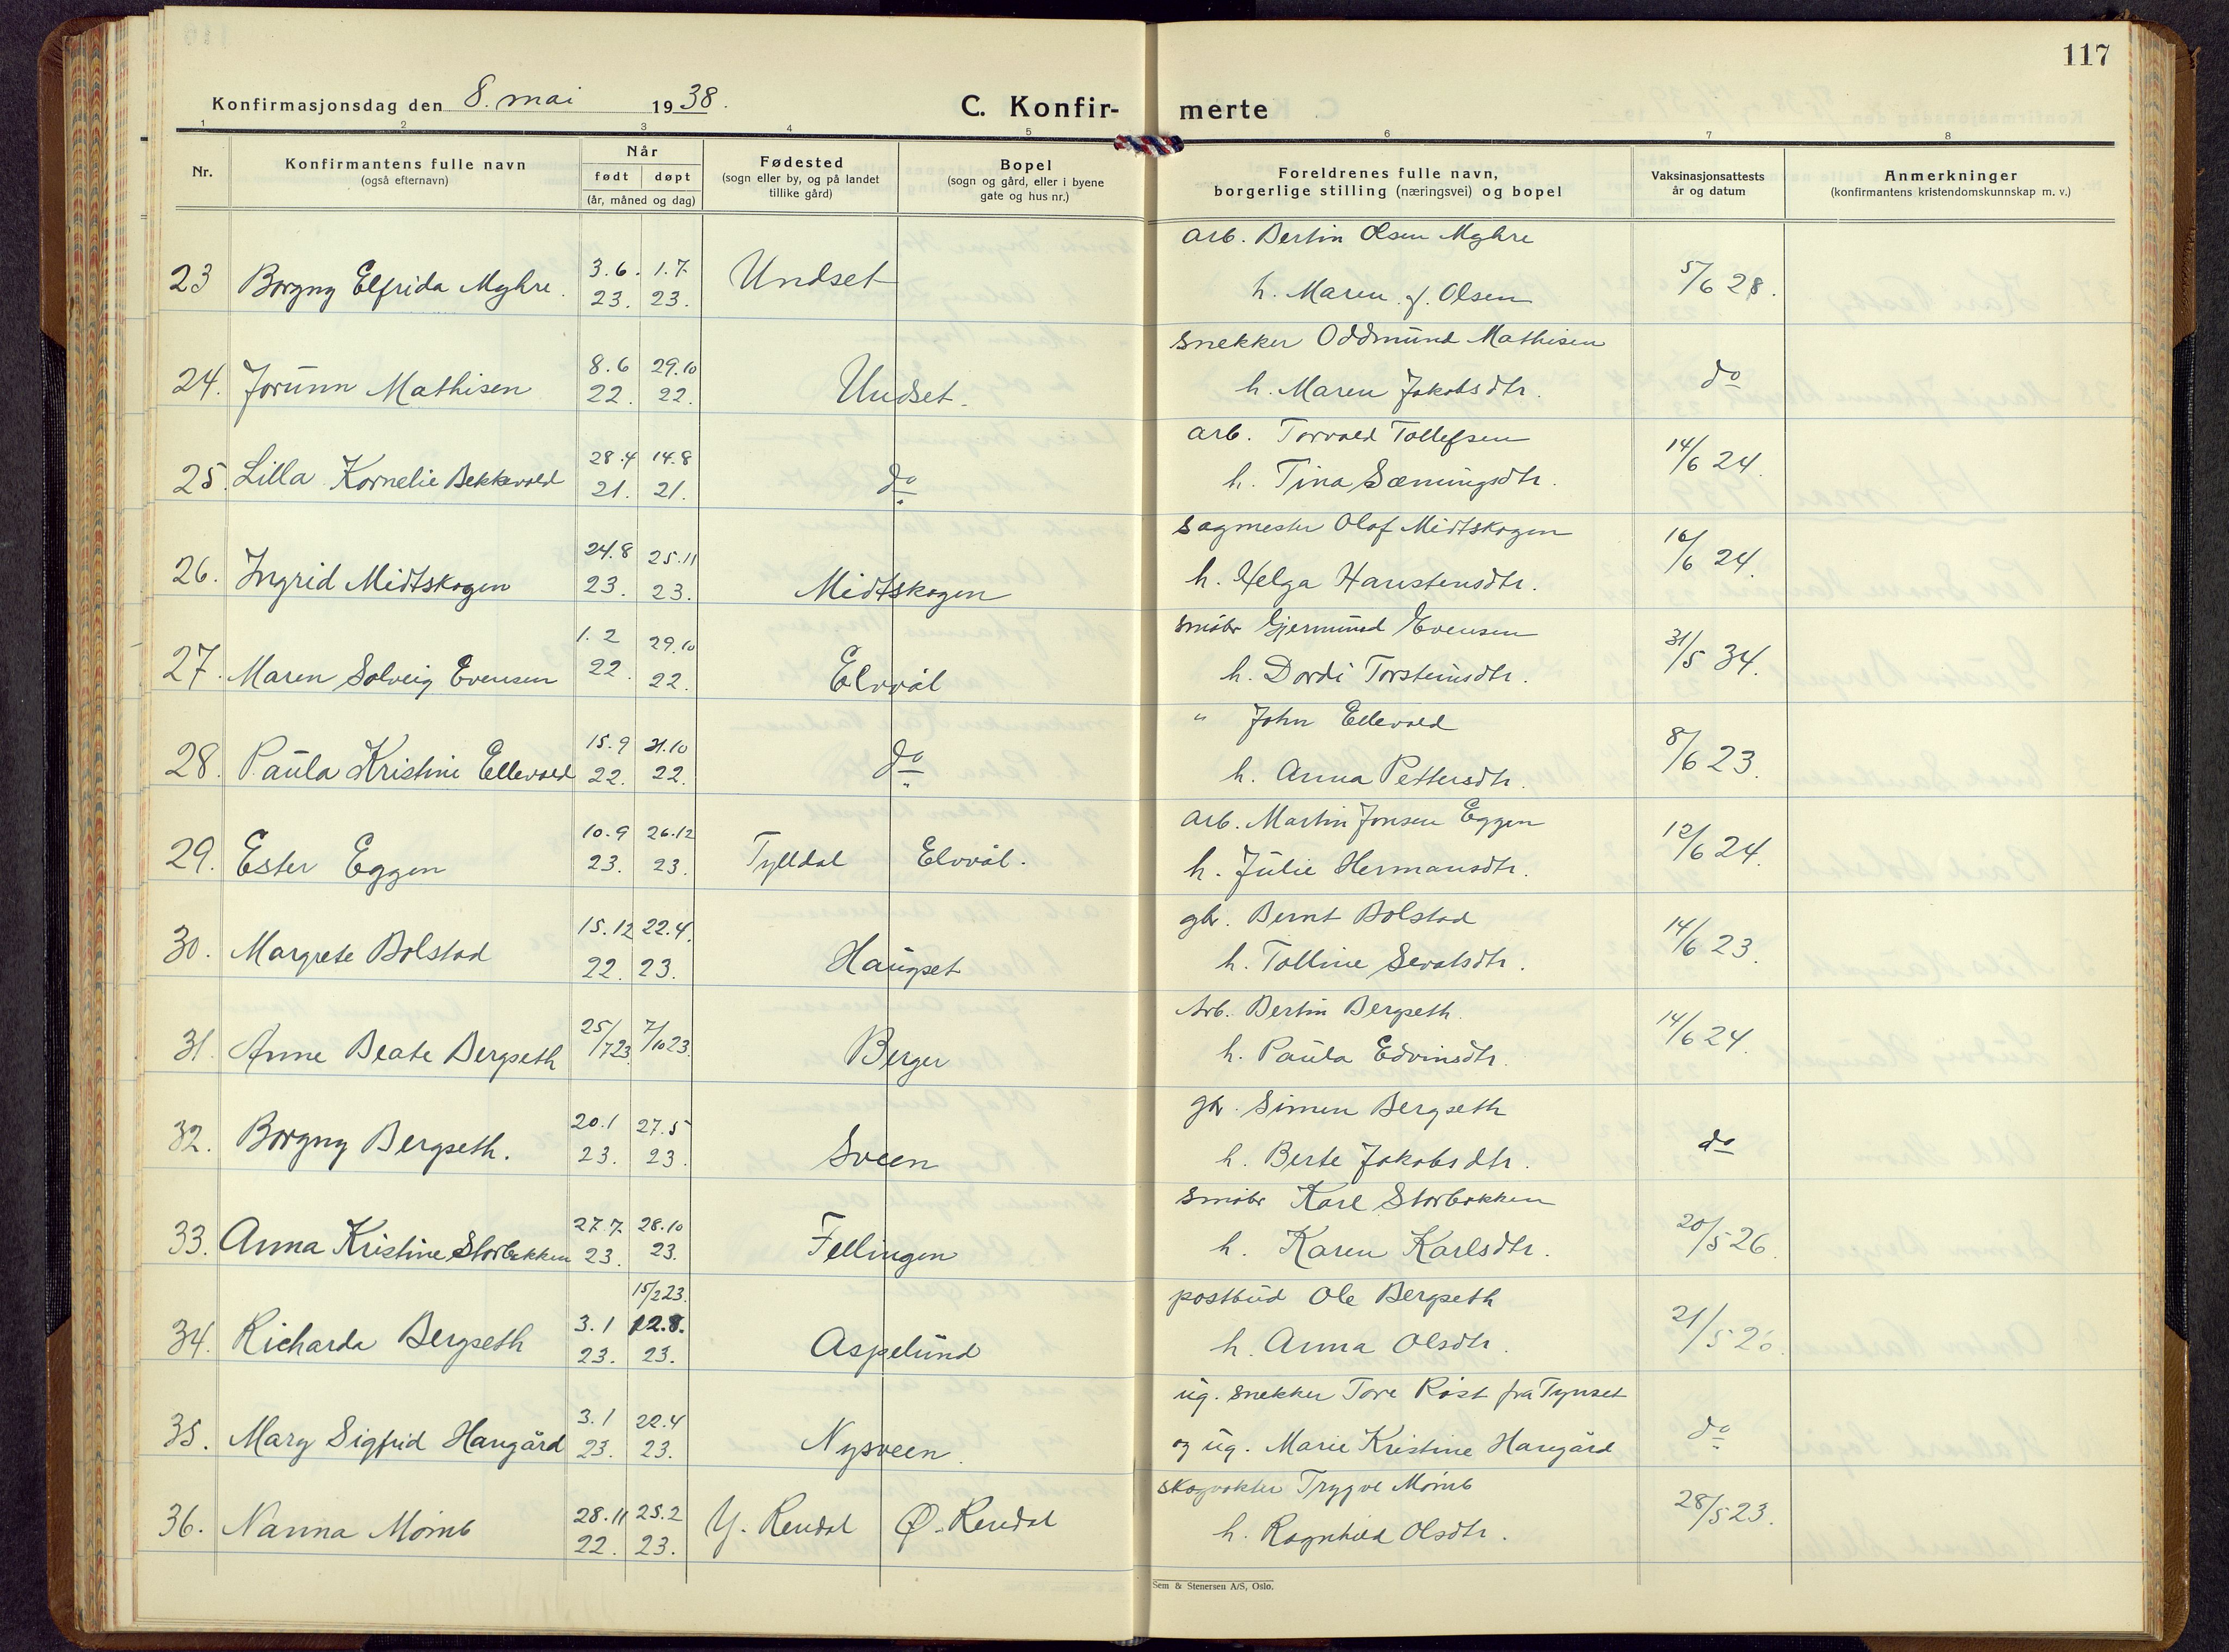 117
Konfirmasjonsdag den 8. mai 1938.
C. Konfir- merte
1 2 3 4 5 6 7 8
Nr.
Konfirmantens fulle navn
(også efternavn)
Når
født døpt
(år, måned og dag)
Fødested
(sogn eller by, og på landet
tillike gård)
Bopel
(sogn og gård, eller i byene
gate og hus nr.)
Foreldrenes fulle navn,
borgerlige stilling (næringsvei) og bopel
Vaksinasjonsattests
år og datum
Anmerkninger
(konfirmantens kristendomskunnskap m. v.)
arb. Bertin Olsen Myhre
23 Borgny Elfrida Myhre. 3.6. 23. 1.7. 23. Undset h. Maren f. Olsen 5/6 28.
snekker Oddmund Mathisen
24. Jorunn Mathisen 8.6 22. 29.10 22. Undset. h. Maren Jakobsdtr. do
arb. Torvald Tollefsen
25. Lilla Kornelie Bekkevold 28.4 21. 14.8 21. do h. Tina Sæmingsdtr. 14/6 24.
sagmester Olaf Midtskogen
26. Ingrid Midtskogen 24.8 23. 25.11 23. Midtskogen h. Helga Hanstensdtr. 16/6 24.
småbr Gjermund Evensen
27. Maren Solveig Evensen 1.2 22. 29.10 22. Elvål h. Dordi Torsteinsdtr. 31/5 34.
" John Ellevold
28. Paula Kristine Ellevold 15.9 22. 31.10 22. do h. Anna Pettersdtr. 8/6 23.
arb. Martin Jonsen Eggen
29. Ester Eggen 10.9 23. 26.12 23. Tylldal Elvål. h. Julie Hermansdtr. 12/6 24.
gbr. Bernt Bolstad
30. Margrete Bolstad 15.12 22. 22.4. 23. Haugset h. Tolline Sevatsdtr. 14/6 23.
Arb. Bertin Bergseth.
31. Anne Beate Bergseth 25/7 23. 7/10 23. Berger h. Paula Edvinsdtr. 14/6 24.
gbr. Simen Bergseth
32. Borgny Bergseth. 20.1 23. 27.5 23. Sveen h. Berte Jakobsdtr. do
småbr Karl Storbekken
33. Anna Kristine Storbekken 27.7. 23. 28.10 23. Fellingen h. Karen Karlsdtr. 20/5 26.
postbud Ole Bergseth
34. Richarda Bergseth 3.1 23. 15/2 23. 12.8. 23. Aspelund h. Anna Olsdtr. 21/5 26.
ug. snekker Tore Røst fra Tynset
35. Mary Sigfrid Haugård 3.1 23. 22.4 23. Nysveen. og ug. Marie Kristine Haugård do
skogvokter Trygve Momb
36. Nanna Momb 28.11 22. 25.2 23. Y. Rendal Ø. Rendal h. Ragnhild Olsdtr. 28/5 23.
Sem & Stenersen A/S, Oslo.